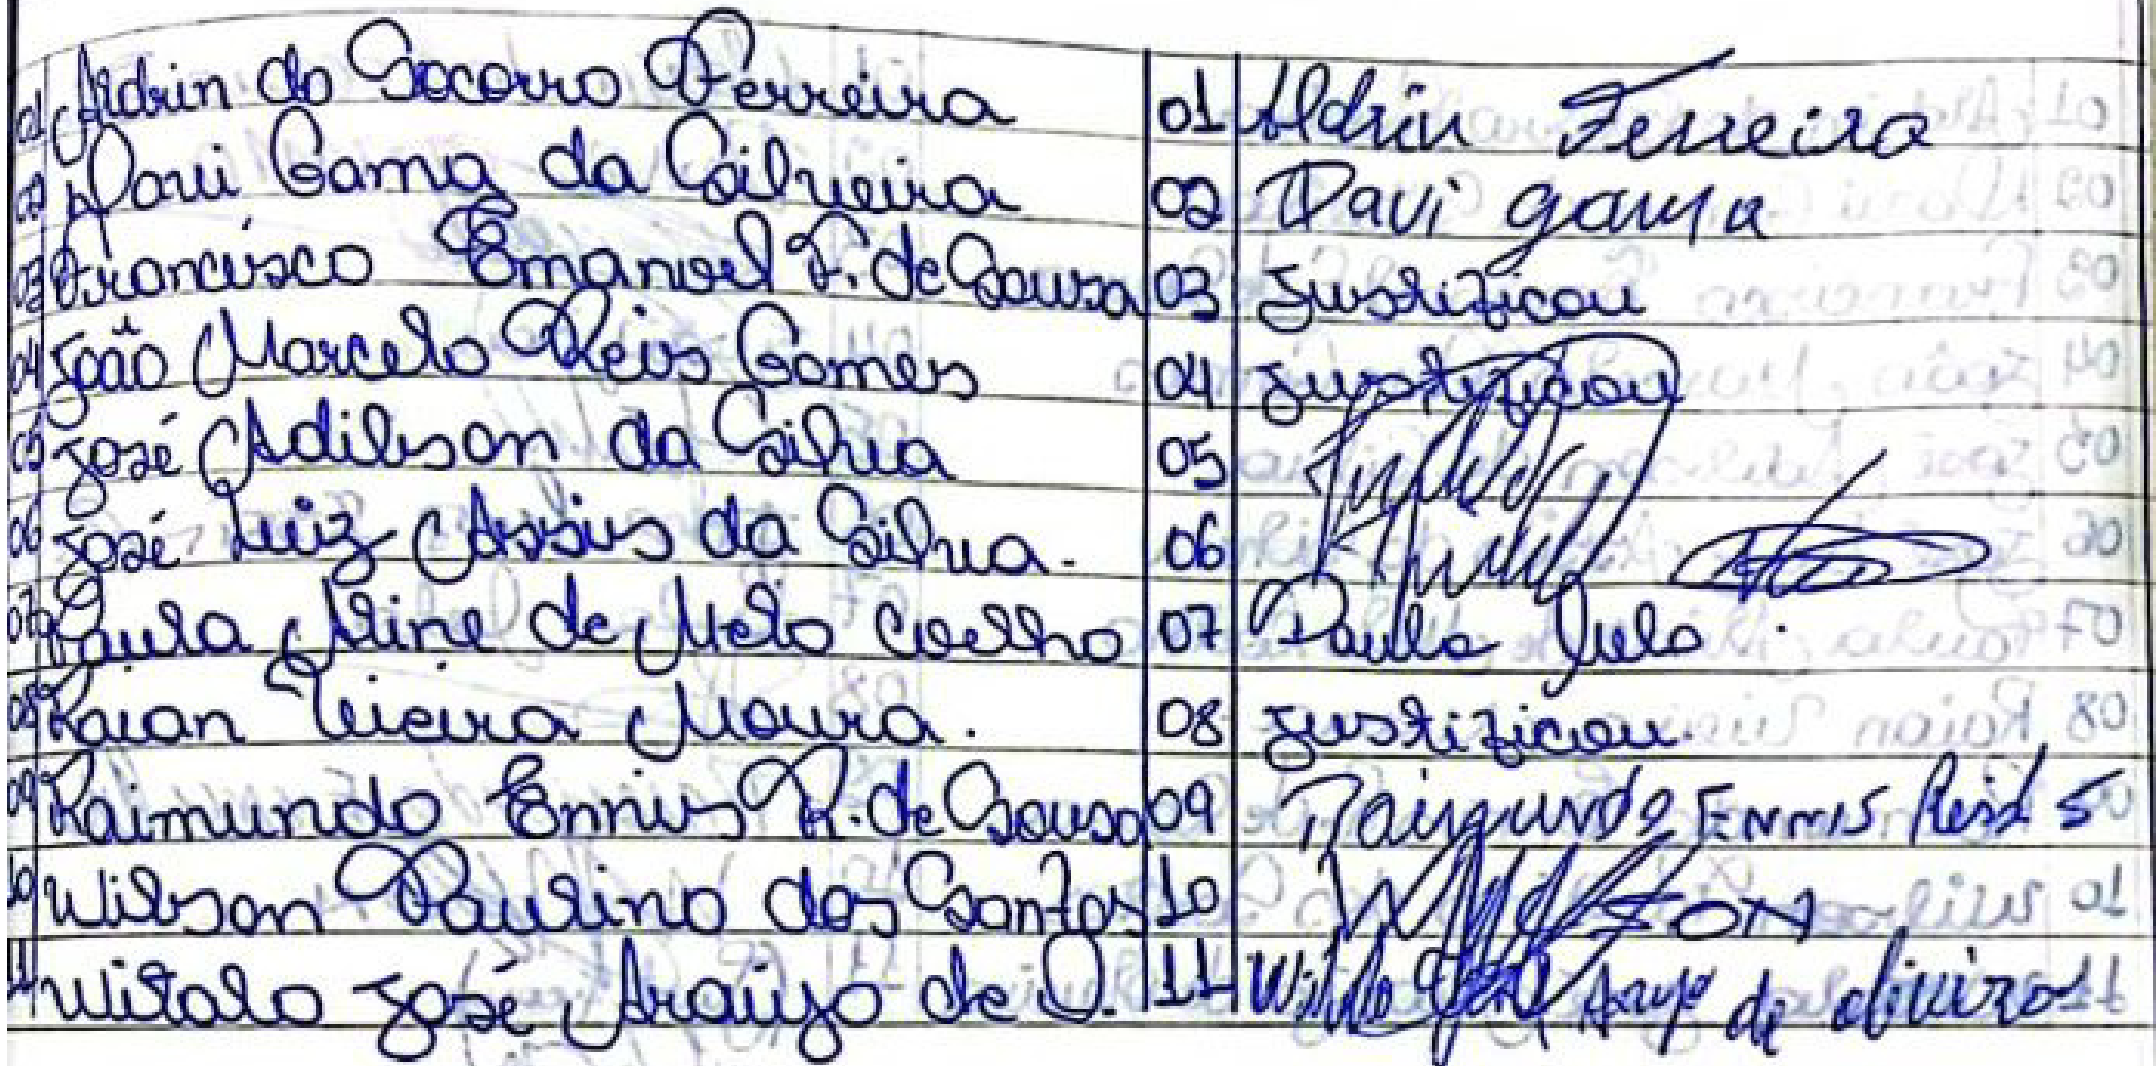 01 Aldrin do Socorro Ferreira 01 Aldrin Ferreira
02 Davi Gama da Silveira 02 Davi gama
03 Francisco Emanoel F. de Sousa 03 Justificou
04 João Marcelo Reis Gomes 04 Justificou
05 José Adilson da Silva 05
06 José Luiz Assis da Silva. 06
07 Paula Aline de Melo Coelho 07 Paula
08 Raian Vieira Moura. 08 Justificou
09 Raimundo Ennis R. de Sousa 09 Raimundo ENNIS S
10 Wilson Paulino dos Santos 10
11 Witalo José Araújo de O. 11 José de